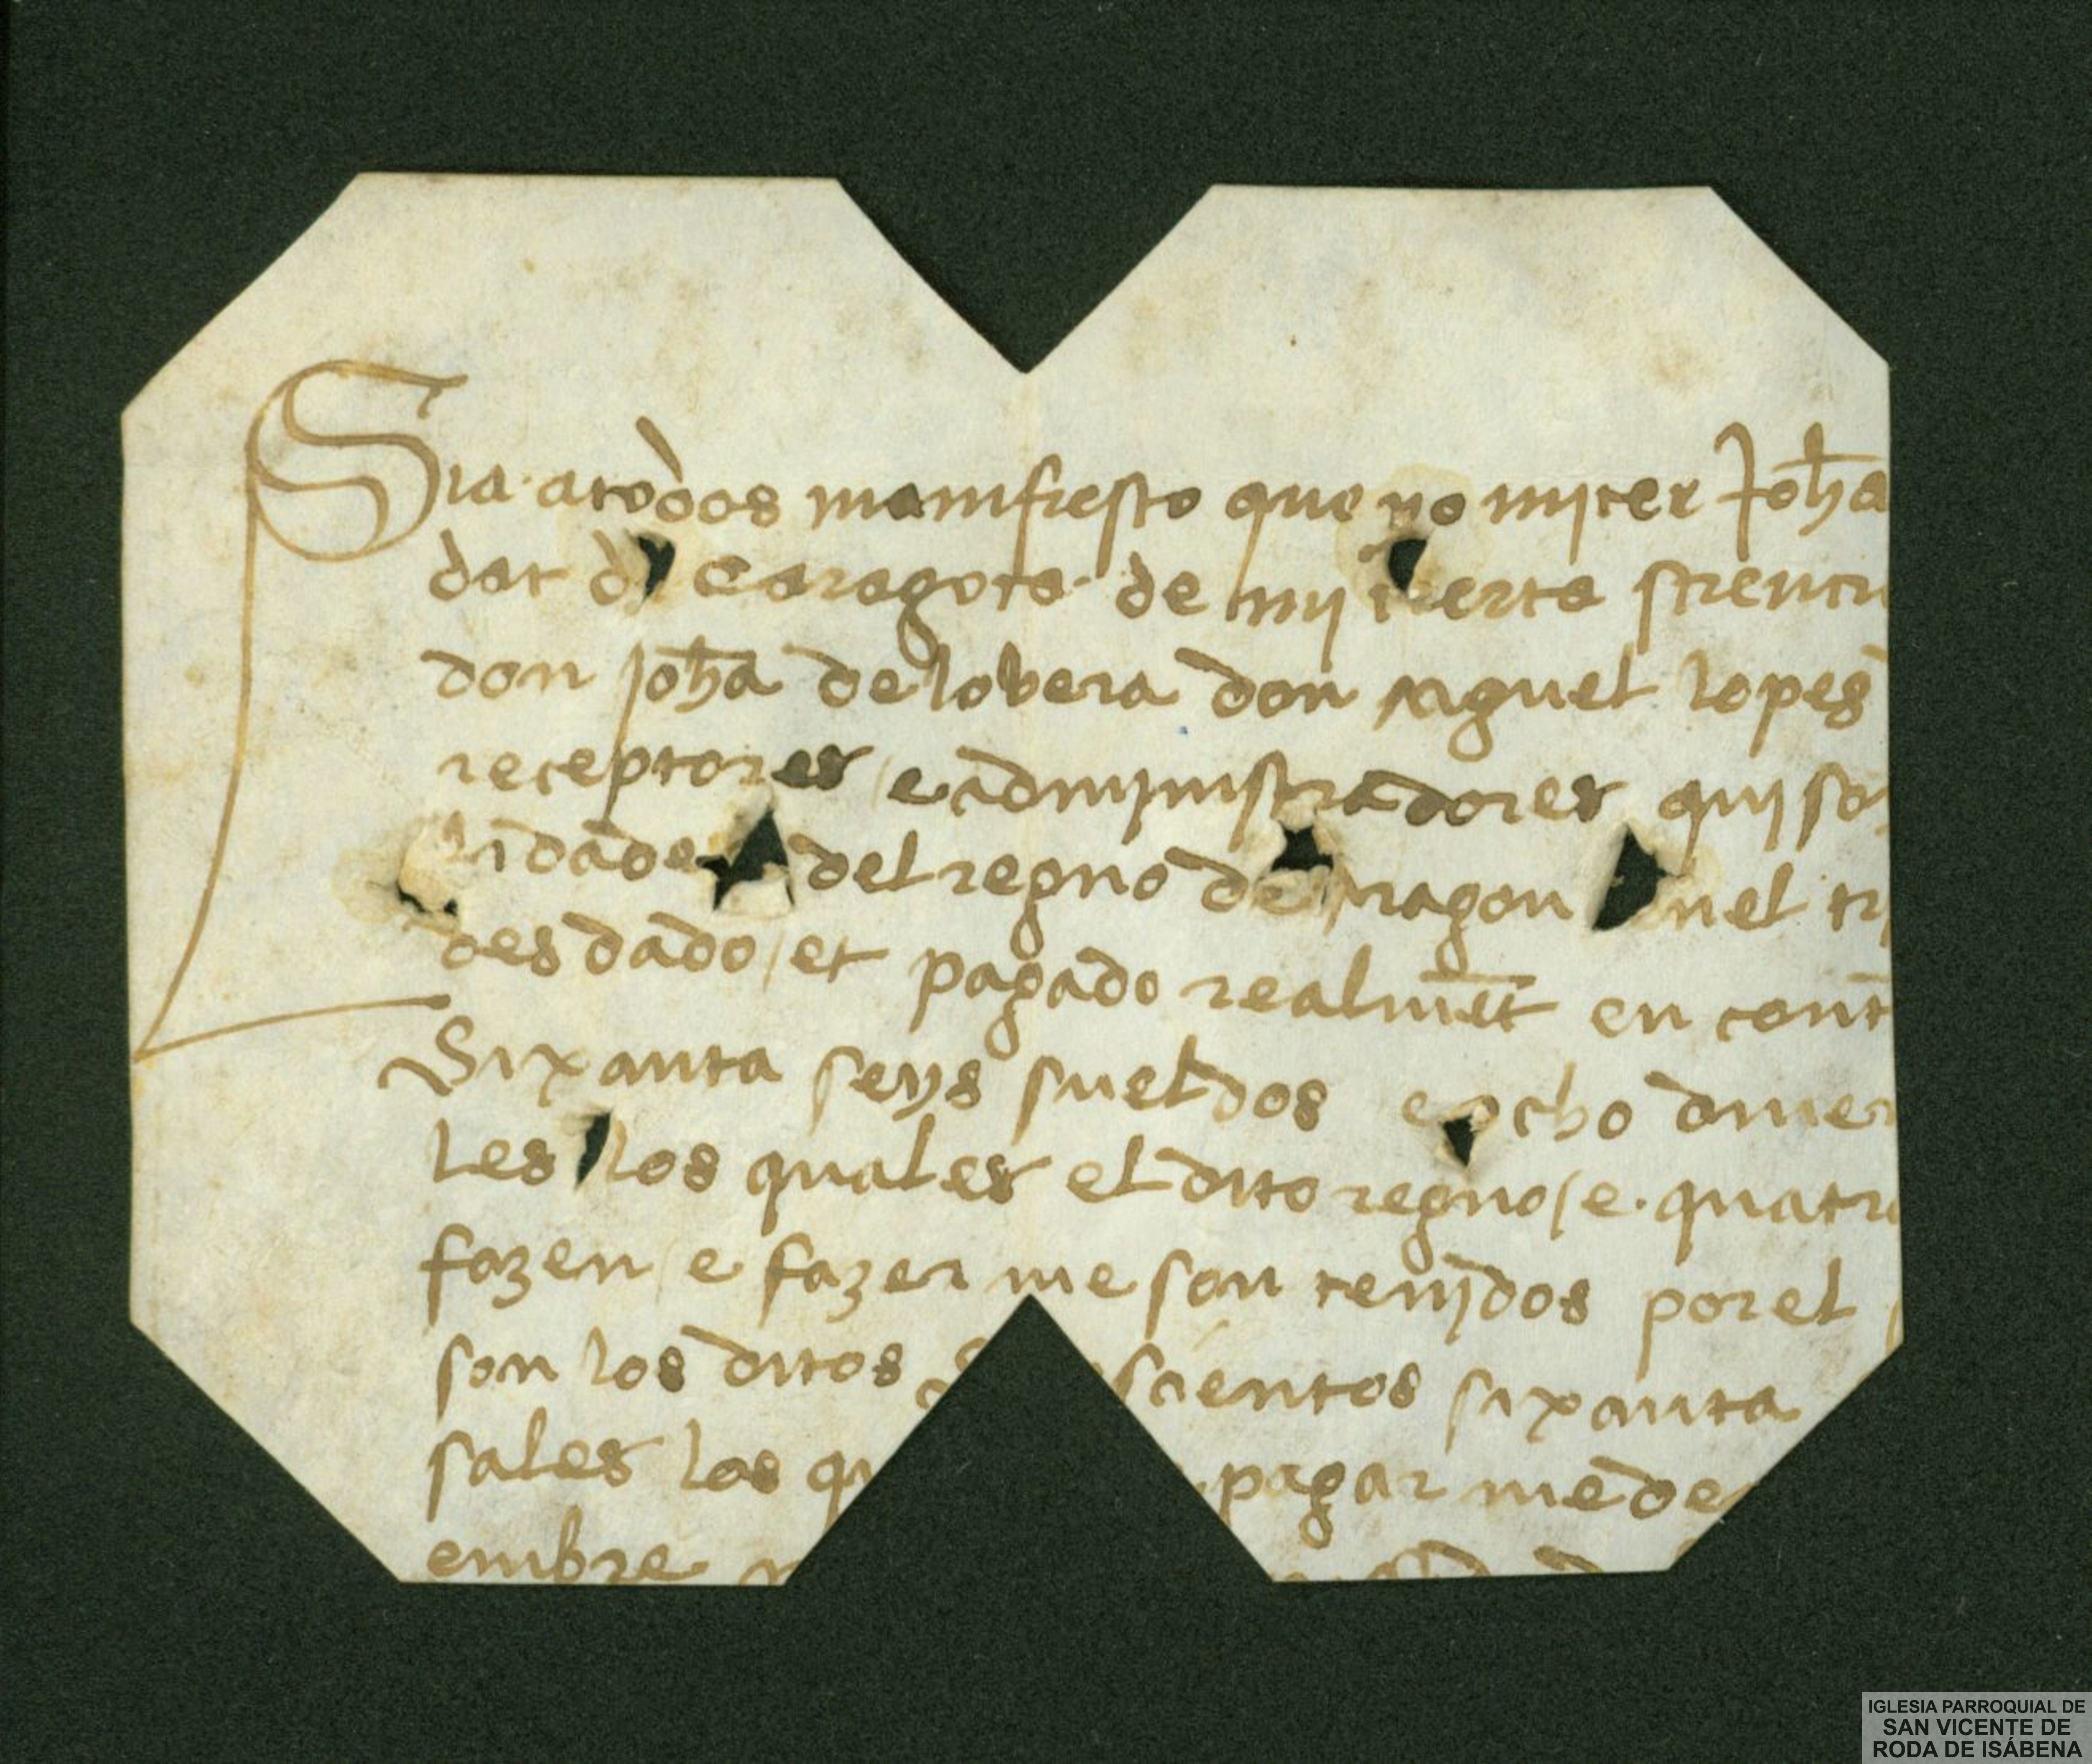 Sia atodos manifiesto que yo micer Joha
dat de Caragoca de mi cierta sciencia
don Joha de lobera don miguel lopes
receptores e administradores qui so
lidades del regno de aragon enel tri
des dado / et pagado realmet en cont
Sixanta seys sueldos e ocho diner
les los quales el dito regno / e quatro
fazen e fazer me son tenidos por el
son los ditos scientos sixanta
sales los qu pagar me de
embre
IGLESIA PARROQUIAL DE
SAN VICENTE DE
RODA DE ISÁBENA